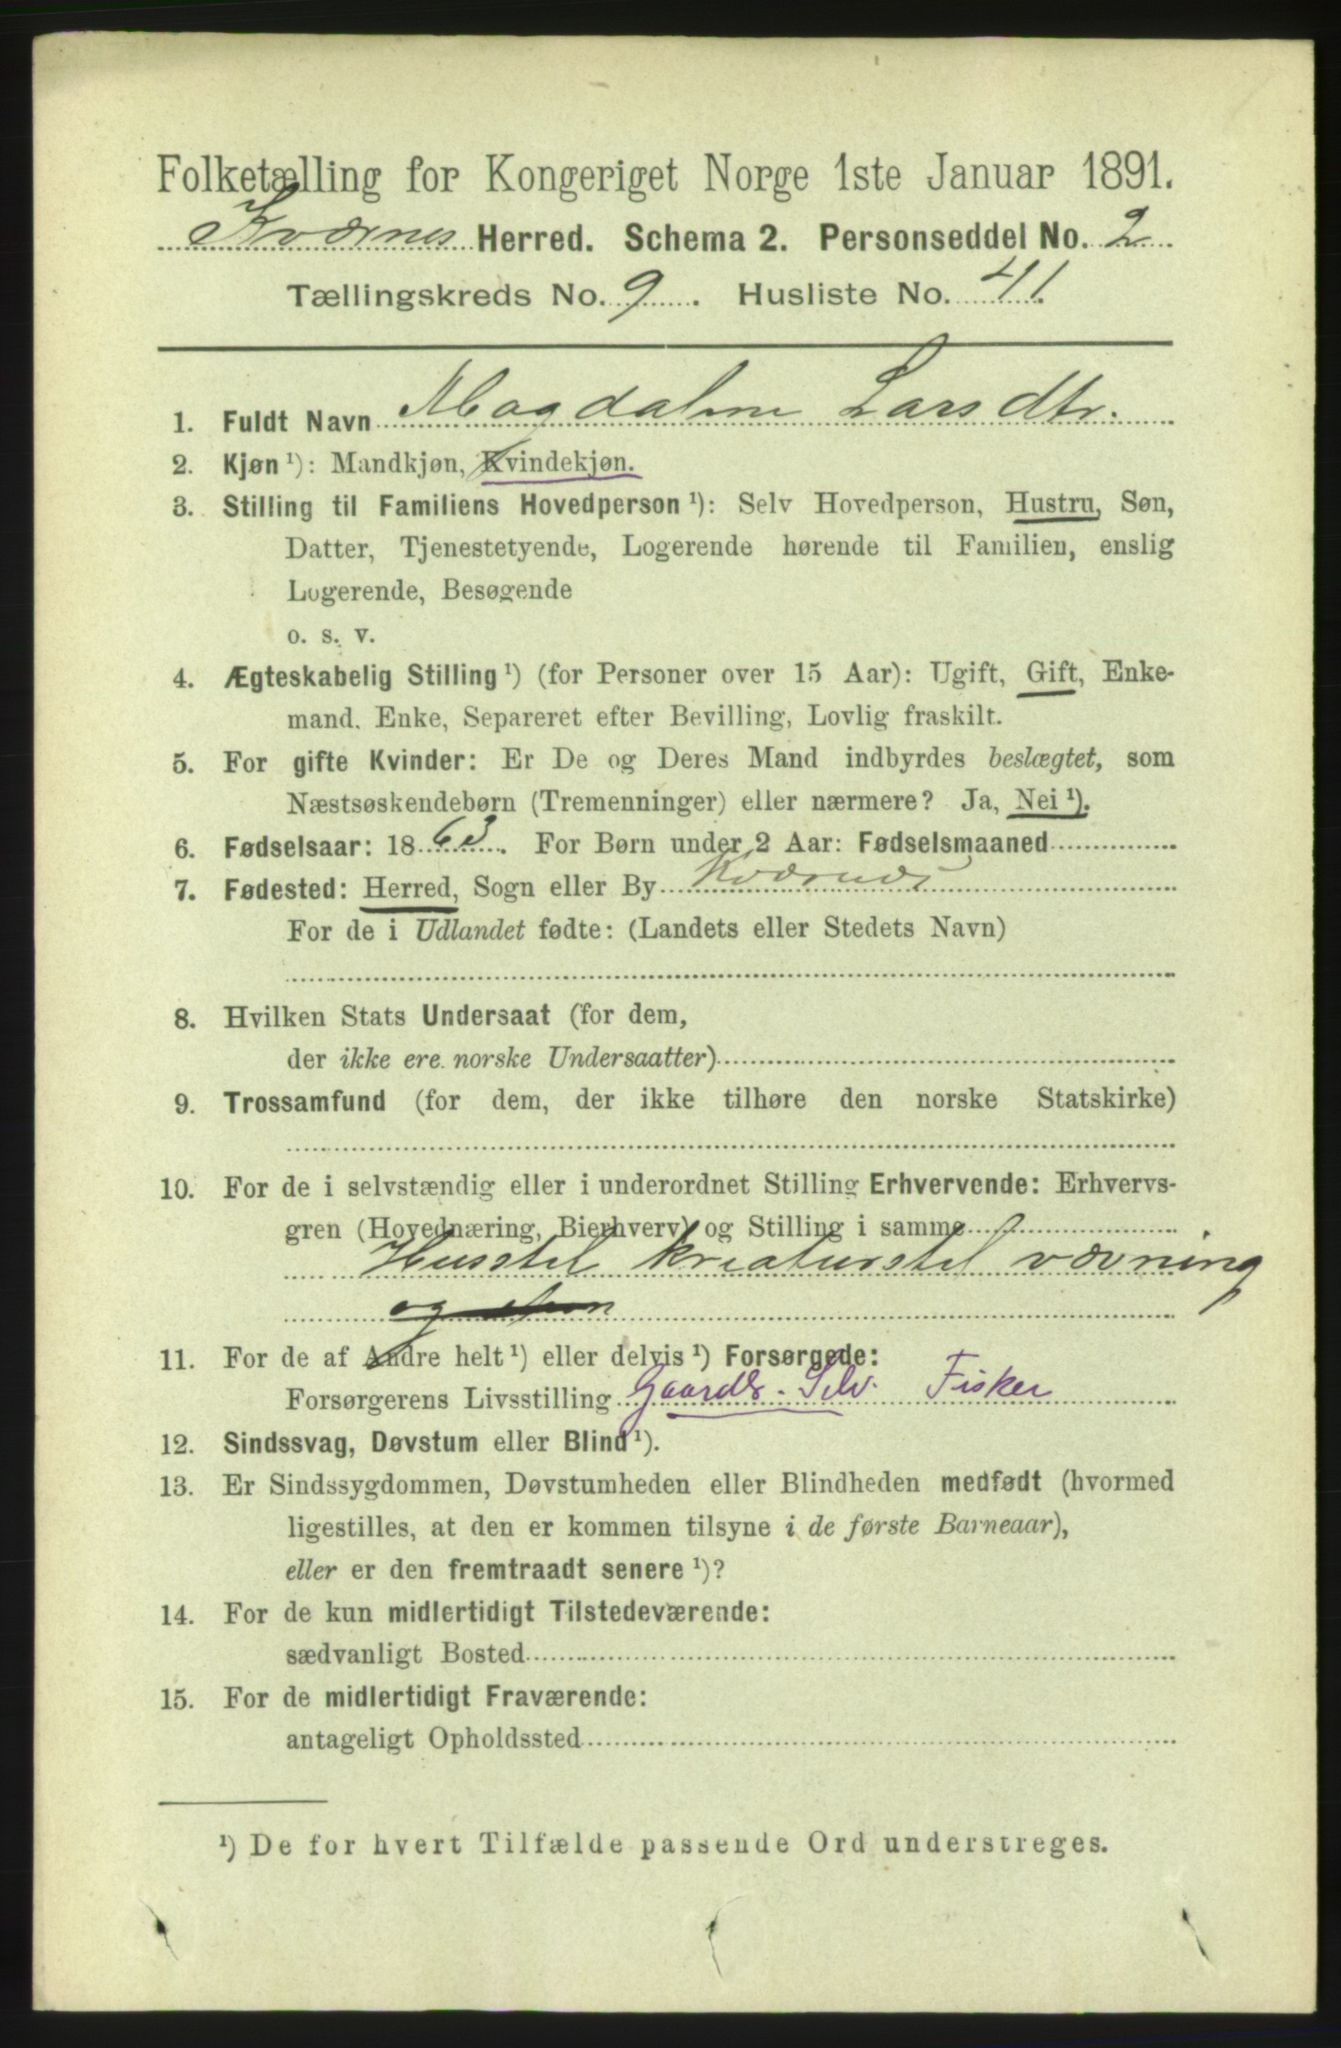 Folketælling for Kongeriget Norge 1ste Januar 1891.
Kværnes Herred. Schema 2. Personseddel No. 2
Tællingskreds No. 9. Husliste No. 41.
1. Fuldt Navn Magdalena Larsdtr.
2. Kjøn ¹): Mandkjøn, Kvindekjøn.
3. Stilling til Familiens Hovedperson ¹): Selv Hovedperson, Hustru, Søn,
Datter, Tjenestetyende, Logerende hørende til Familien, enslig
Logerende, Besøgende
o. s. v.
4. Ægteskabelig Stilling ¹) (for Personer over 15 Aar): Ugift, Gift, Enke-
mand, Enke, Separeret efter Bevilling, Lovlig fraskilt.
5. For gifte Kvinder: Er De og Deres Mand indbyrdes beslægtet, som
Næstsøskendebørn (Tremenninger) eller nærmere? Ja, Nei ¹).
6. Fødselsaar: 1863. For Børn under 2 Aar: Fødselsmaaned
7. Fødested: Herred, Sogn eller By Kværnes
For de i Udlandet fødte: (Landets eller Stedets Navn)
8. Hvilken Stats Undersaat (for dem,
der ikke ere norske Undersaatter)
9. Trossamfund (for dem, der ikke tilhøre den norske Statskirke)
10. For de i selvstændig eller i underordnet Stilling Erhvervende: Erhvervs-
gren (Hovednæring, Bierhverv) og Stilling i samme
Husstel kreaturstel vævning
og
11. For de af Andre helt ¹) eller delvis ¹) Forsørgede:
Forsørgerens Livsstilling Gaardb. Selv. Fisker
12. Sindssvag, Døvstum eller Blind ¹).
13. Er Sindssygdommen, Døvstumheden eller Blindheden medfødt (hvormed
ligestilles, at den er kommen tilsyne i de første Barneaar),
eller er den fremtraadt senere ¹)?
14. For de kun midlertidigt Tilstedeværende:
sædvanligt Bosted
15. For de midlertidigt Fraværende:
antageligt Opholdssted
¹) De for hvert Tilfælde passende Ord understreges.